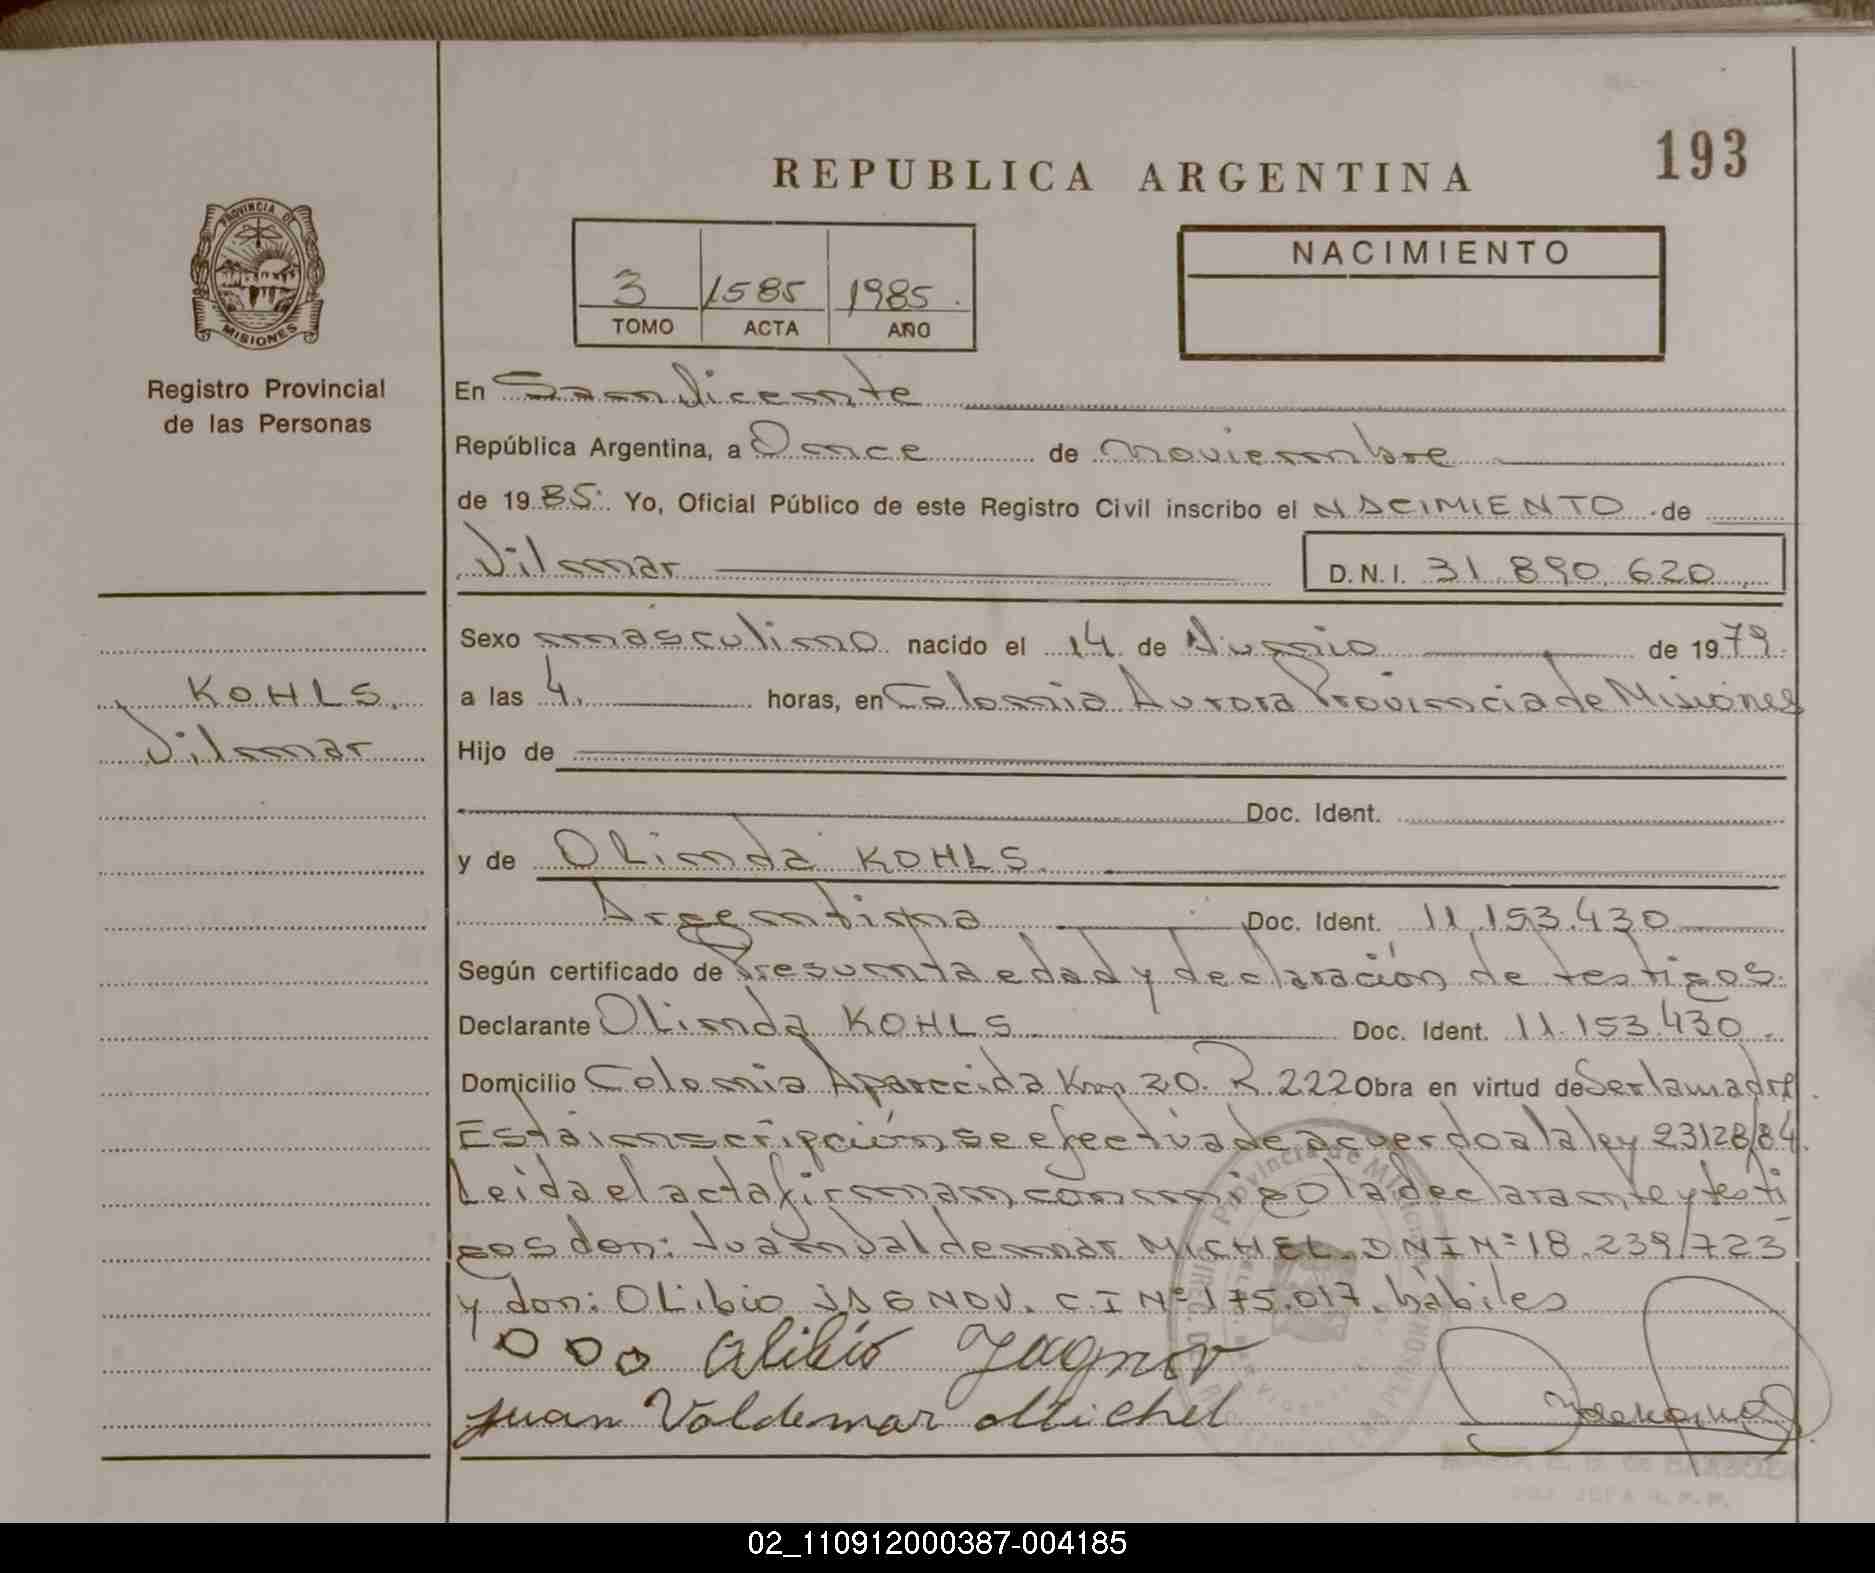 193
REPUBLICA ARGENTINA
PROVINCIA DE
MISIONES
Registro Provincial
de las Personas
3 1585 1985.
TOMO ACTA AÑO
NACIMIENTO
En San Vicente
República Argentina, a Once de noviembre
de 19 85. Yo, Oficial Público de este Registro Civil inscribo el NACIMIENTO de
Vilmar D.N.I. 31.890.620
KOHLS.
Vilmar
Sexo masculino nacido el 14 de Junio de 1979.
a las 4. horas, en Colonia Aurora Provincia de Misiones
Hijo de
Doc. Ident.
y de OLinda KOHLS.
Argentina Doc. Ident. 11.153.430
Según certificado de Presunta edad y declaración de testigos.
Declarante OLinda KOHLS Doc. Ident. 11.153.430.
Domicilio Colonia Aparecida Km 20. R. 222 Obra en virtud de Ser la madre.
Esta inscripción se efectua de acuerdo a la ley 23128/84.
Leida el acta firman conmigo la declarante y testi
gos don: Juan Valdemar MICHEL DNI Nº 18.239.723
y don: OLibio JAGNOV. C.I Nº 175.017. hábiles
Olibio Jagnov
Juan Valdemar Michel
Provincia de Misiones
02_110912000387-004185